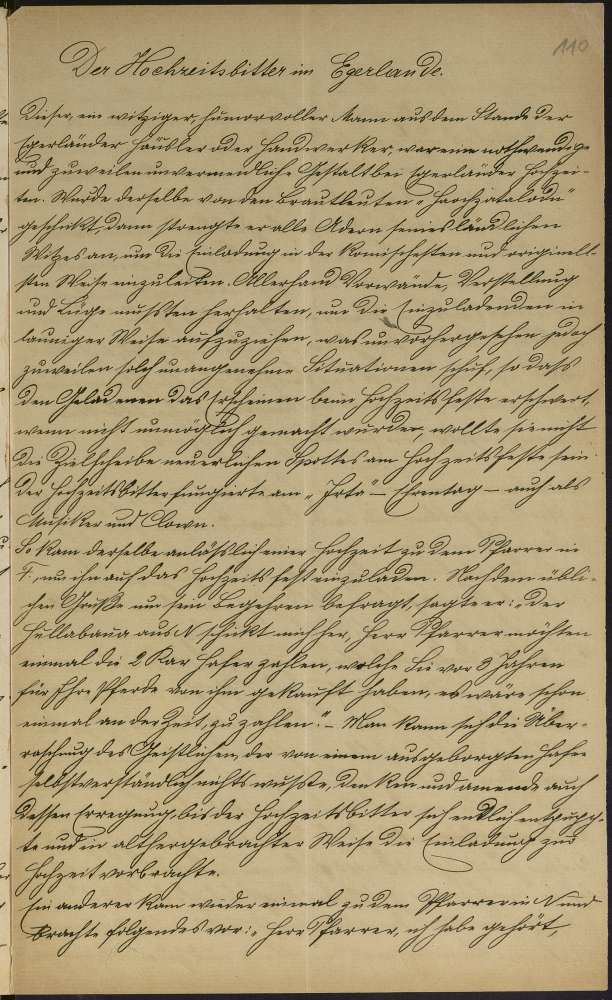 110
Der Hochzeitsbitter im Egerlande.
Dieser, ein witziger, humorvoller Mann aus dem Stande der
Egerländer Häusler oder Handwerker, war eine nothwendige
und zuweilen unvermeidliche Gestalt bei Egerländer Hochzei-
ten. Wurde derselbe von den Brautleuten „
geschickt, dann strengte er alle Adern seines ländlichen
Witzes an, um die Einladung in der komischesten und originell-
sten Weise einzuleiten. Allerhand Vorwände, Verstellung
und Lüge mußten herhalten, um die Einzuladenden in
launiger Weise aufzuziehen, was unvorhergesehen jedoch
zuweilen solch unangenehme Situationen schuf, so daß
den Geladenen das Erscheinen beim Hochzeitsfeste erschwert,
wenn nicht unmöglich gemacht wurde, wollte sie nicht
die Zielscheibe neuerlichen Spottes am Hochzeitsfeste sein.
Der Hochzeitsbitter fungierte am „Irta" — Erentag — auch als
Musiker und Clown.
So kam derselbe anläßlich einer Hochzeit zu dem Pfarrer in
F., um ihn auf das Hochzeitsfest einzuladen. Nach dem übli-
chen Gruße um sein Begehren befragt, sagte er: „Der
Hüllabaua aus N schickt mich her, Herr Pfarrer möchten
einmal die 2 Kar Hafer zahlen, welche Sie vor 3 Jahren
für Ihre Pferde von ihm gekauft haben, es wäre schon
einmal an der Zeit, zu zahlen." — Man kann sich die Über-
raschung des Geistlichen, der von einem ausgeborgten Hafer
selbstverständlich nichts wußte, denken und am ende auch
dessen Erregung, bis der Hochzeitsbitter sich endlich entpupp-
te und in althergebrachter Weise die Einladung zur
Hochzeit vorbrachte.
Ein anderer kam wieder einmal zu dem Pfarrer in N und
brachte folgendes vor: „Herr Pfarrer, ich habe gehört,